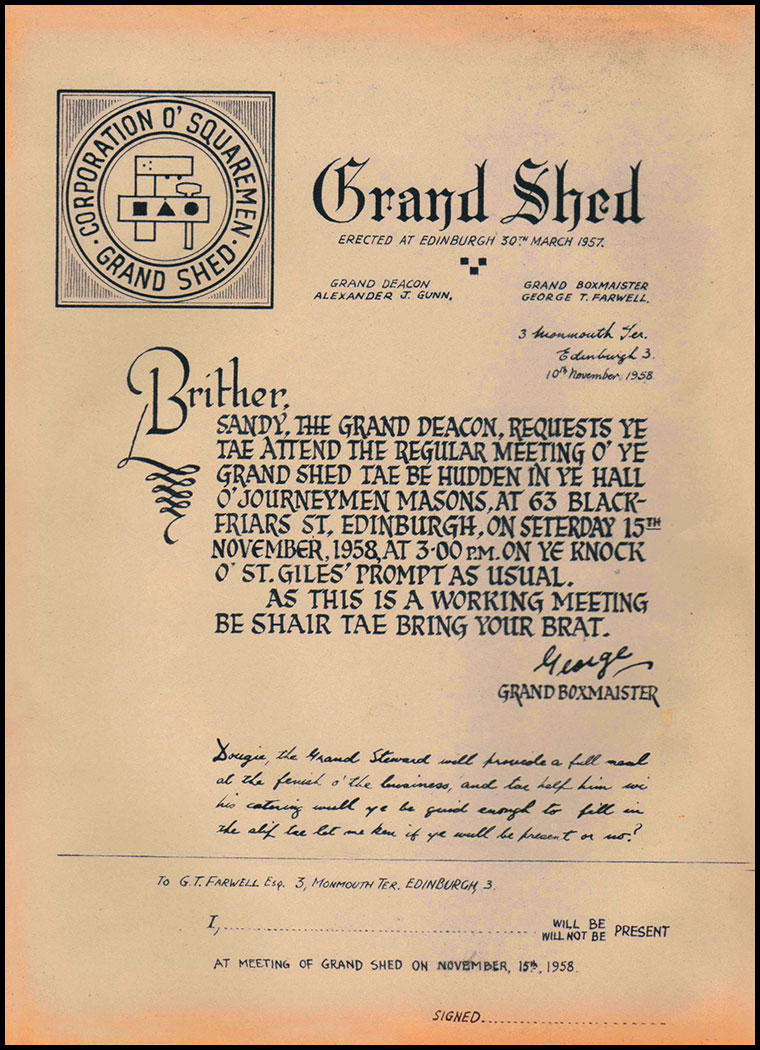 CORPORATION O' SQUAREMEN
· GRAND SHED ·
Grand Shed
ERECTED AT EDINBURGH 30TH MARCH 1957.
GRAND DEACON
ALEXANDER J. GUNN.
GRAND BOXMAISTER
GEORGE T. FARWELL.
3 Monmouth Ter.
Edinburgh 3.
10th November, 1958.
Brither,
SANDY, THE GRAND DEACON, REQUESTS YE
TAE ATTEND THE REGULAR MEETING O' YE
GRAND SHED TAE BE HUDDEN IN YE HALL
O' JOURNEYMEN MASONS, AT 63 BLACK-
FRIARS ST, EDINBURGH, ON SETERDAY 15TH
NOVEMBER, 1958, AT 3·00 P.M. ON YE KNOCK
O' ST. GILES' PROMPT AS USUAL.
AS THIS IS A WORKING MEETING
BE SHAIR TAE BRING YOUR BRAT.
George
GRAND BOXMAISTER
Dougie, the Grand Steward will provide a full meal
at the fenish o' the business, and tae help him wi
his catering wull ye be guid enough to fill in
the slip tae let me ken if ye wull be present or no?
TO G.T. FARWELL ESQ. 3, MONMOUTH TER. EDINBURGH, 3.
I,.................................................. WILL BE
WILL NOT BE PRESENT
AT MEETING OF GRAND SHED ON NOVEMBER, 15th, 1958.
SIGNED..............................